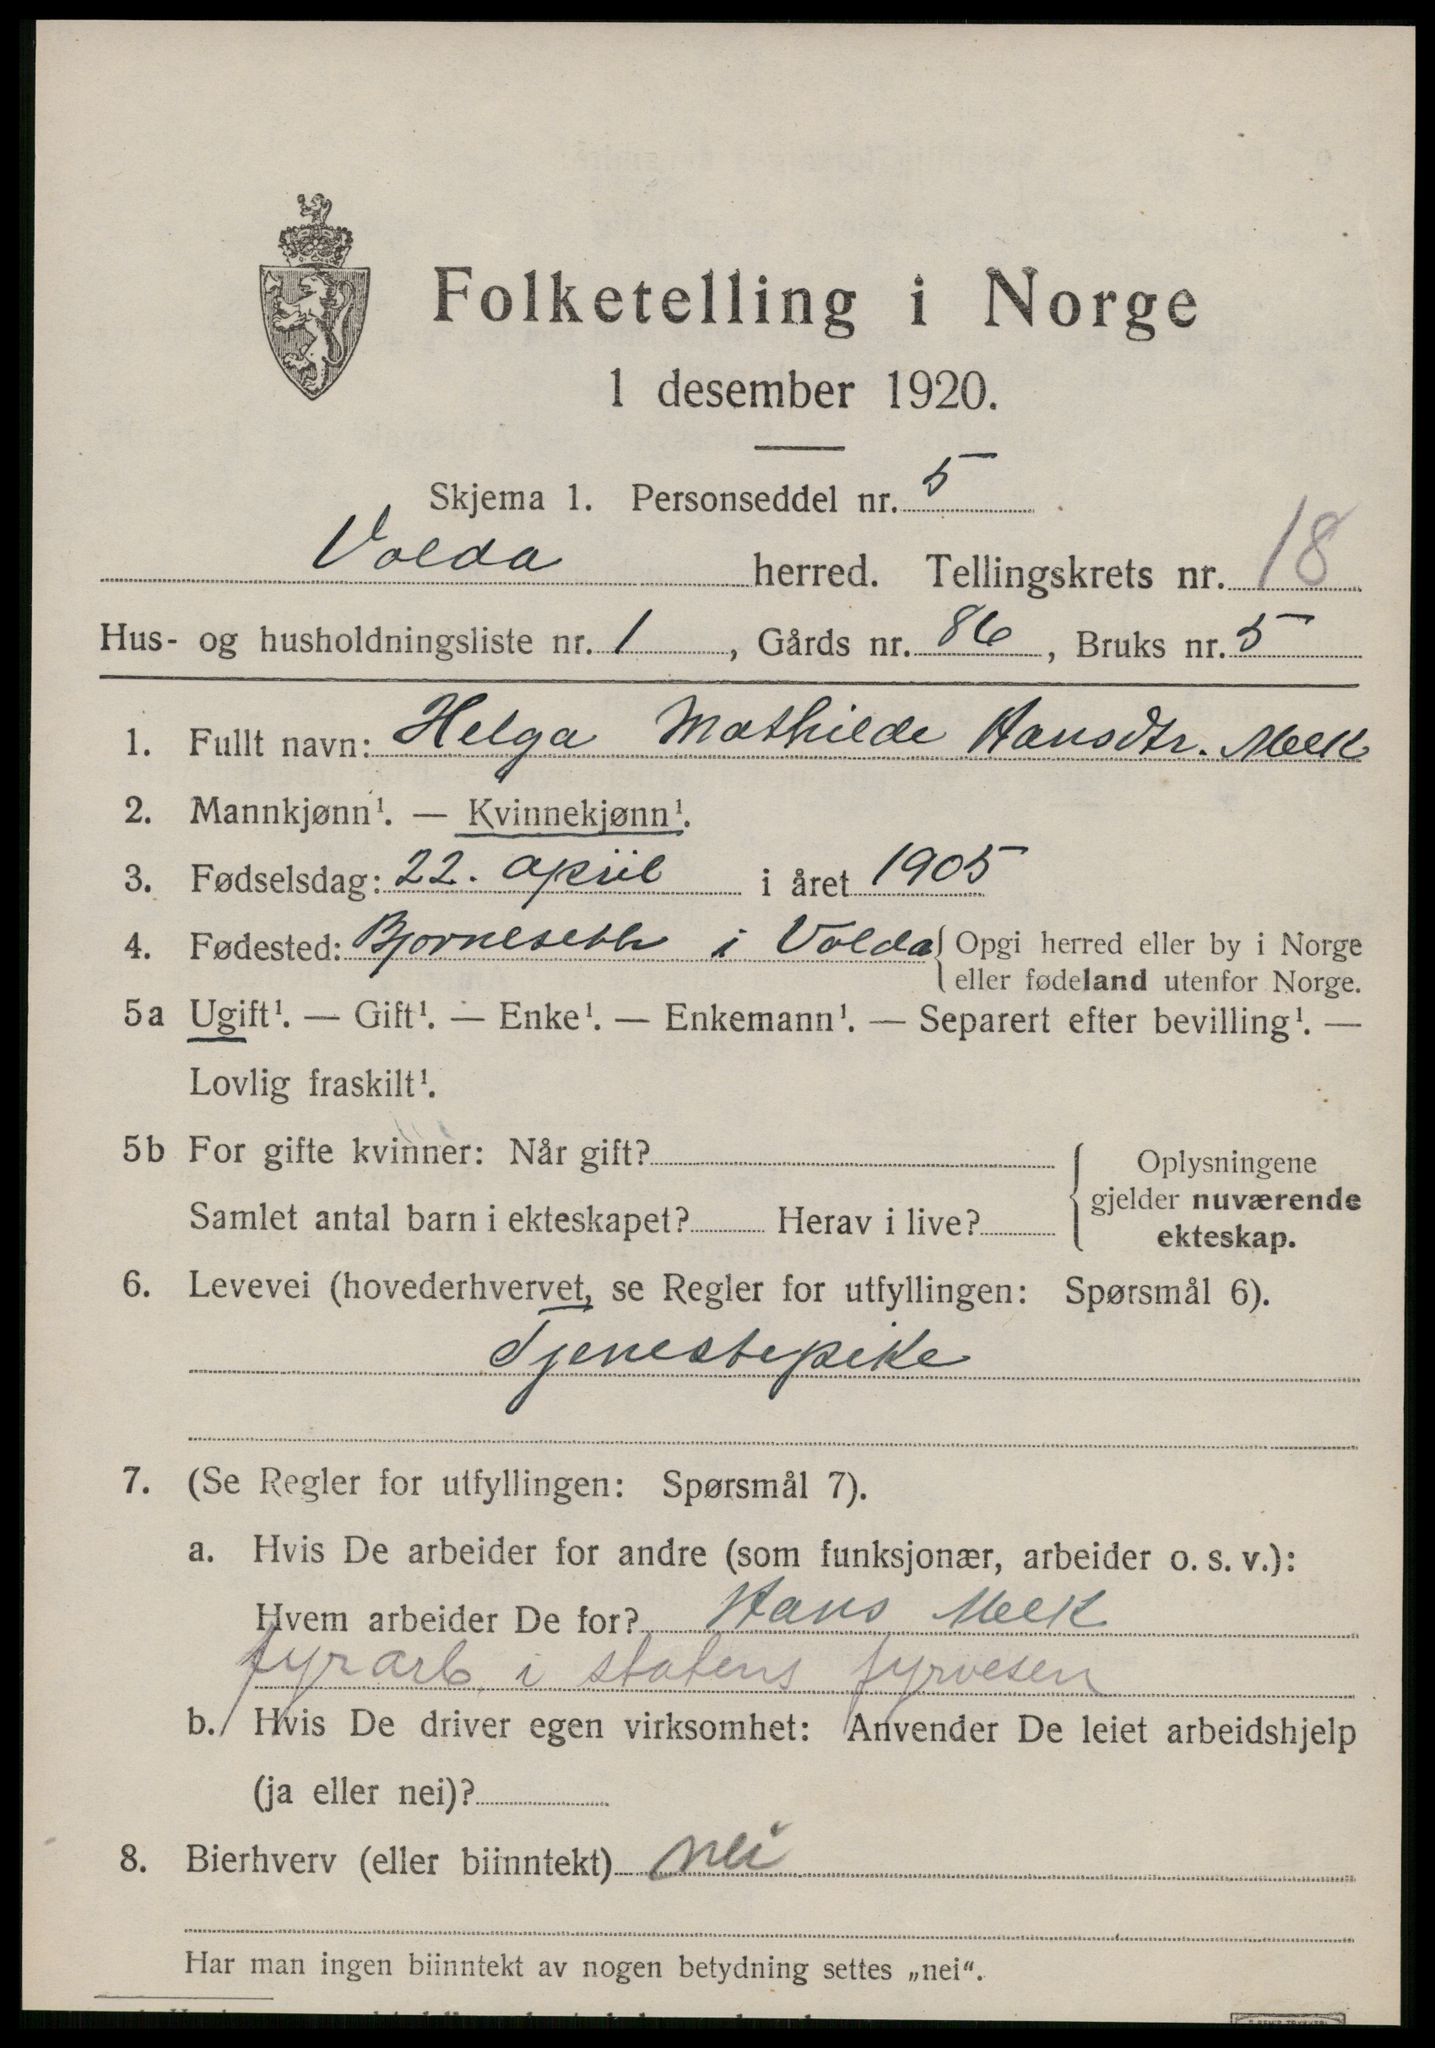 Folketelling i Norge
1 desember 1920.
Skjema 1. Personseddel nr. 5
Volda herred. Tellingskrets nr. 18
Hus- og husholdningsliste nr. 1, Gårds nr. 86, Bruks nr. 5
1. Fullt navn: Helga Mathilde Hansdtr. Melk
2. Mannkjønn¹. — Kvinnekjønn¹.
3. Fødselsdag: 22. april i året 1905
4. Fødested: i Volda { Opgi herred eller by i Norge
eller fødeland utenfor Norge.
5a Ugift¹. — Gift¹. — Enke¹. — Enkemann¹. — Separert efter bevilling¹. —
Lovlig fraskilt¹.
5b For gifte kvinner: Når gift?
Samlet antal barn i ekteskapet? Herav i live?
{ Oplysningene
gjelder nuværende
ekteskap.
6. Levevei (hovederhvervet, se Regler for utfyllingen: Spørsmål 6).
Tjenestepike
7. (Se Regler for utfyllingen: Spørsmål 7).
a. Hvis De arbeider for andre (som funksjonær, arbeider o. s. v.):
Hvem arbeider De for? Hans Melk
fyrarb. i statens fyrvesen
b. Hvis De driver egen virksomhet: Anvender De leiet arbeidshjelp
(ja eller nei)?
8. Bierhverv (eller biinntekt) nei
Har man ingen biinntekt av nogen betydning settes „nei“.